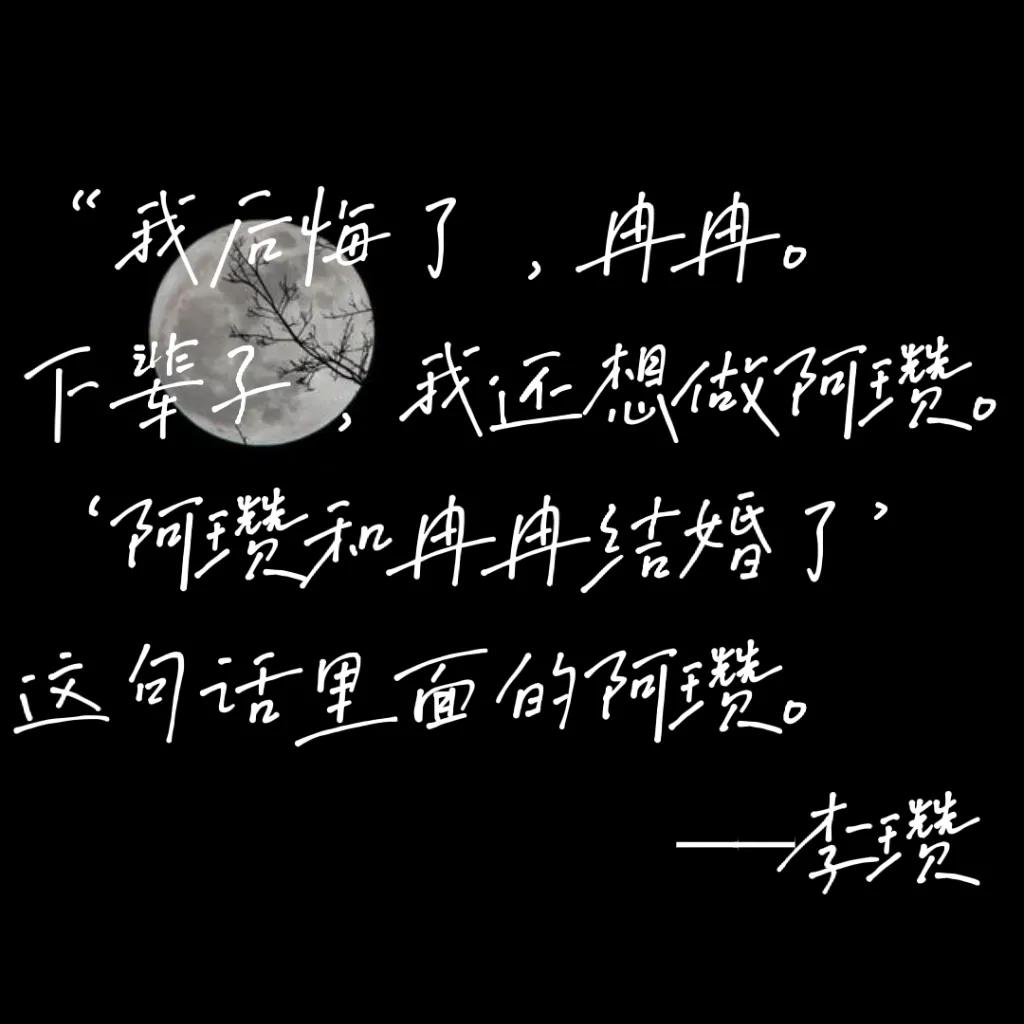 “我后悔了，冉冉。
下辈子，我还想做阿瓒。
‘阿瓒和冉冉结婚了’
这句话里面的阿瓒。
——李瓒